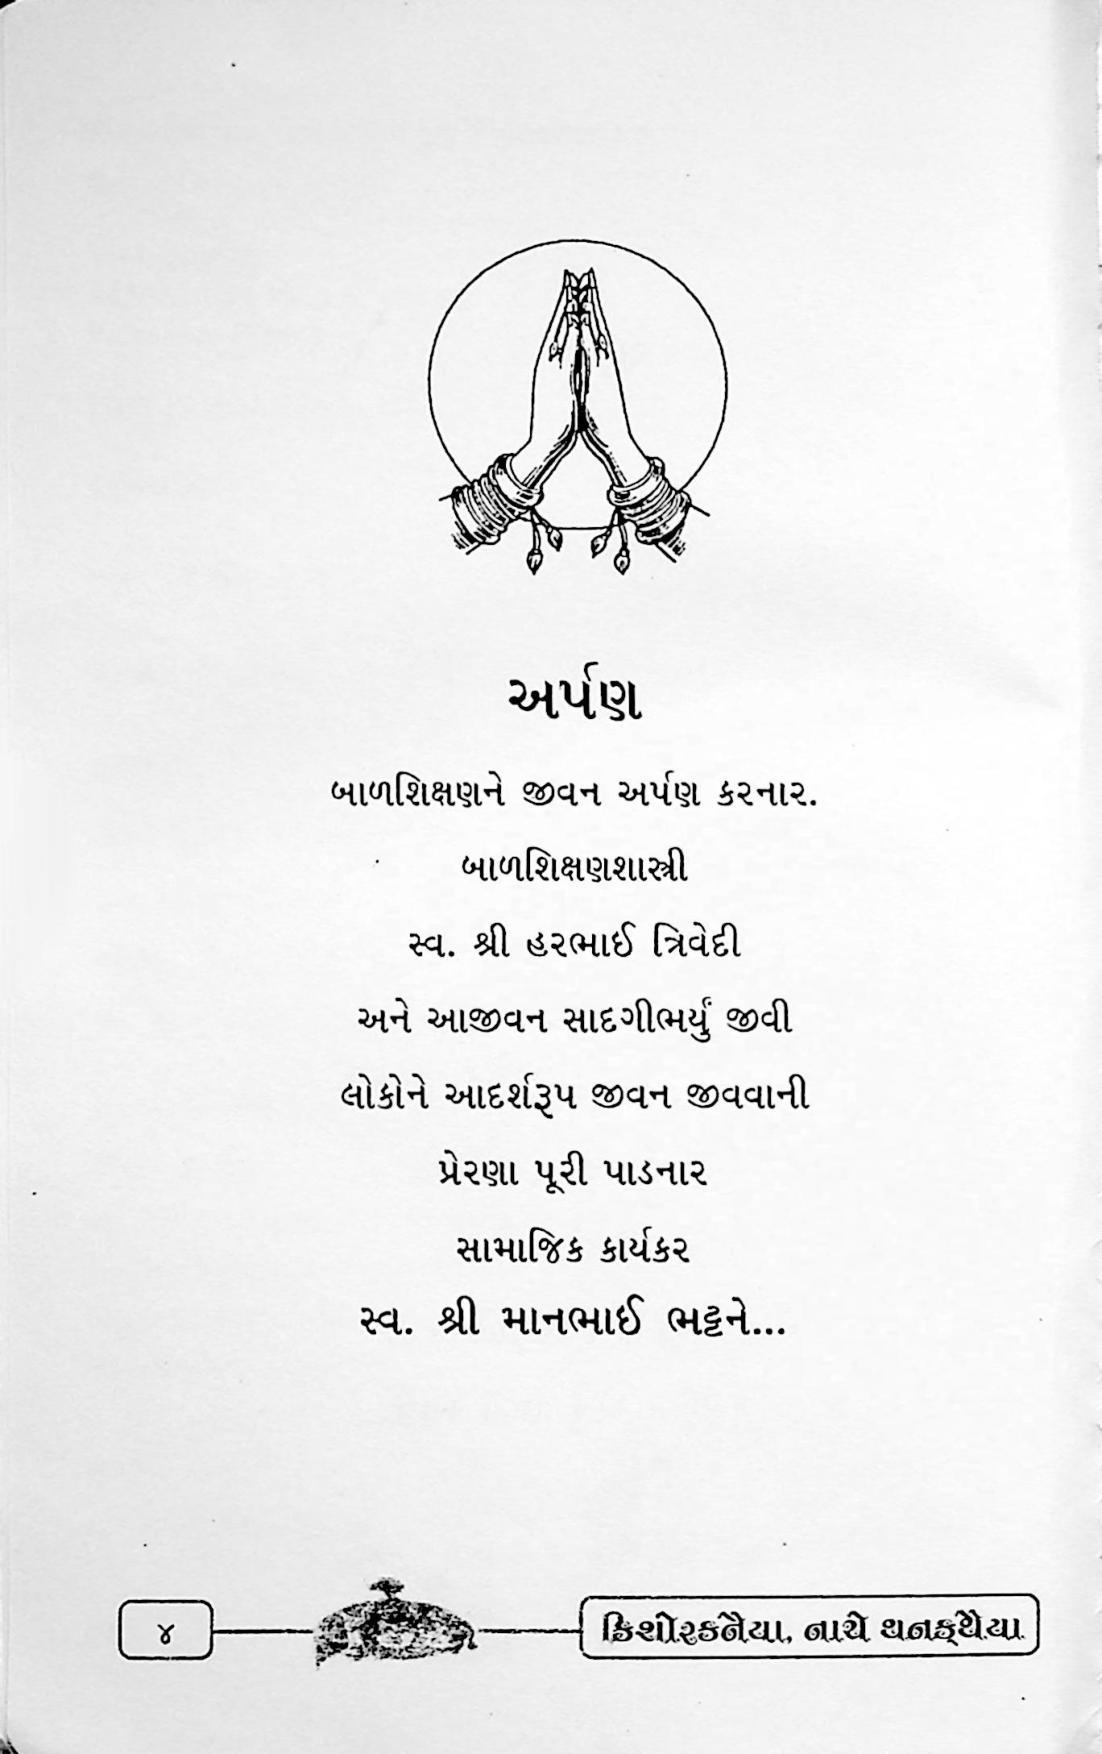 અર્પણ
બાળશિક્ષણને જીવન અર્પણ કરનાર.
બાળશિક્ષણશાસ્ત્રી
સ્વ. શ્રી હરભાઈ ત્રિવેદી
અને આજીવન સાદગીભર્યું જીવી
લોકોને આદર્શરૂપ જીવન જીવવાની
પ્રેરણા પૂરી પાડનાર
સામાજિક કાર્યકર
સ્વ. શ્રી માનભાઈ ભટ્ટને...
૪
કિશોરકનૈયા, નાચે થનક્થૈયા